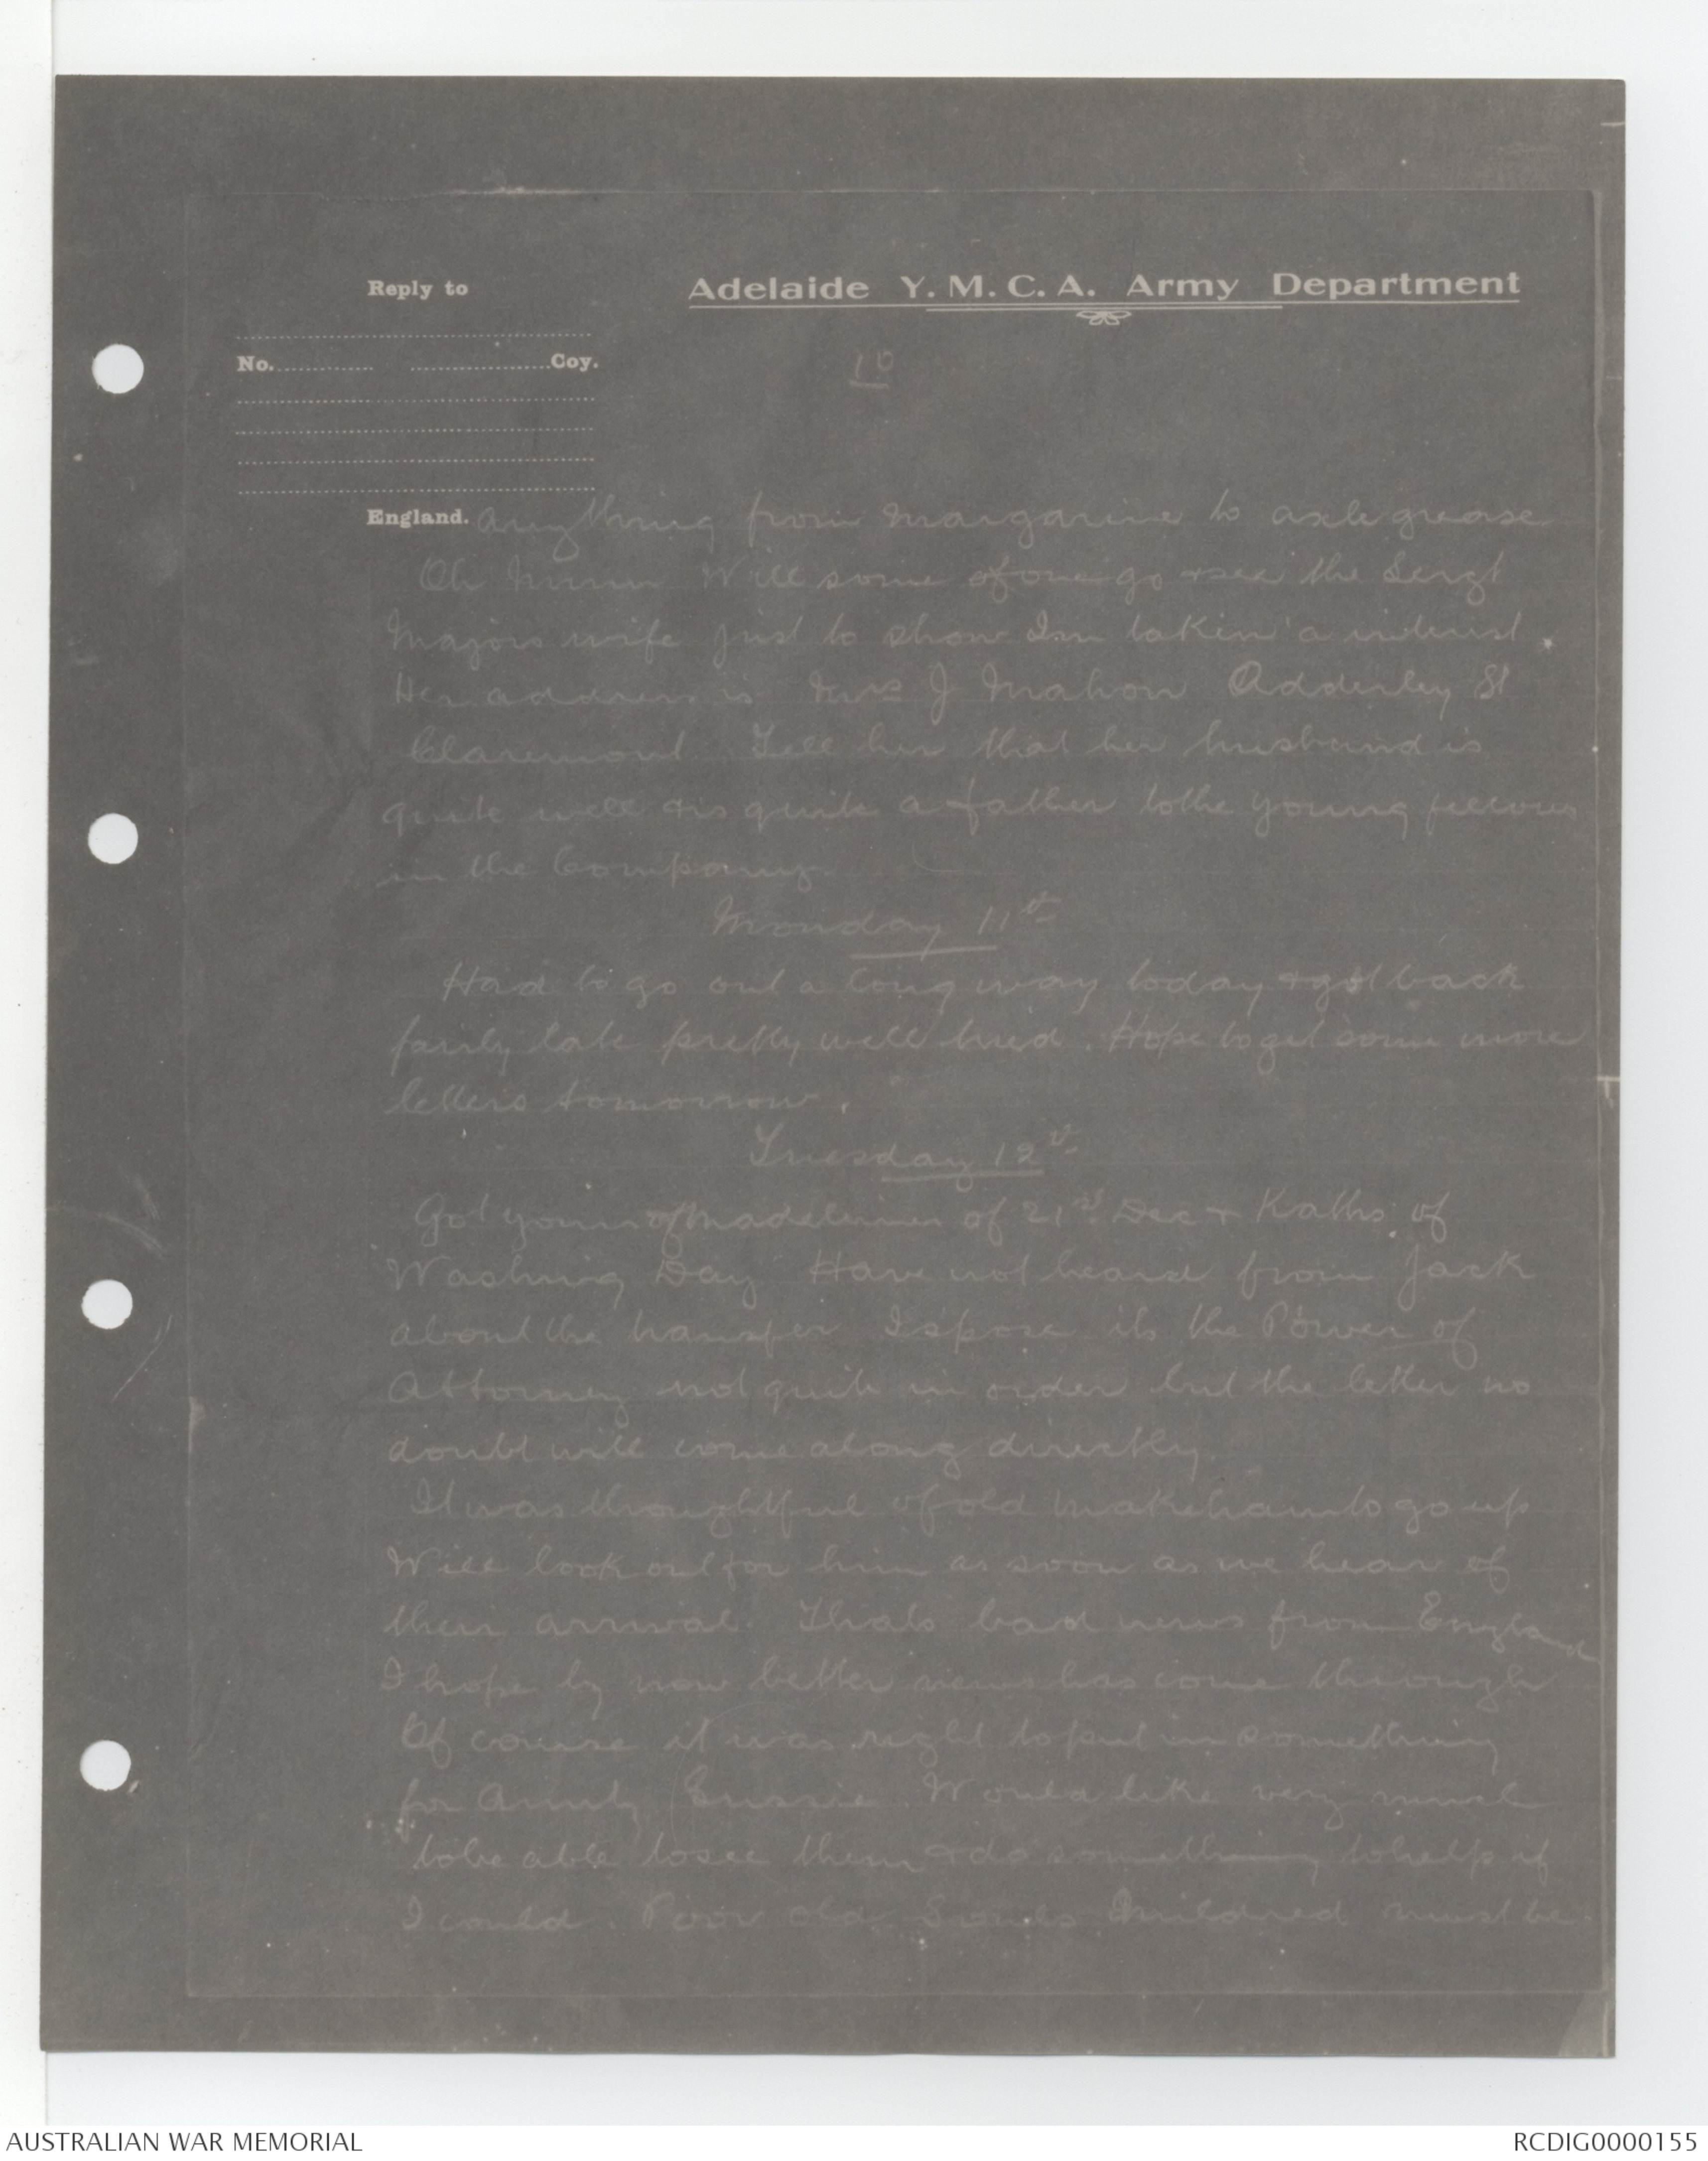 Reply to
Adelaide Y.M.C.A. Army Department
No. Coy.
10
England.
anything from margarine to axle grease
Oh Mum Will some of one go & see the Sergt
Majors wife just to show Im takin' a interest.
Her address is Mrs J Mahon Adderley St
Claremont. Tell her that her husband is
quite well & is quite a father to the young fellows
in the Company.
Monday 11th
Had to go out a long way today & got back
fairly late pretty well tired. Hope to get some more
letters tomorrow.
Tuesday 12th
Got yours of Madelines of 21st Dec & Kaths of
Washing Day Have not heard from Jack
about the transfer I s'pose its the Power of
Attorney not quite in order but the letter no
doubt will come along directly.
It was thoughtful of old Makeham to go up
Will look out for him as soon as we hear of
their arrival. Thats bad news from England
I hope by now better news has come through
Of course it was right to put in something
for Aunty Eussie. Would like very much
to be able to see them & do something to help if
I could. Poor old Souls Mildred must be
AUSTRALIAN WAR MEMORIAL
RCDIG0000155